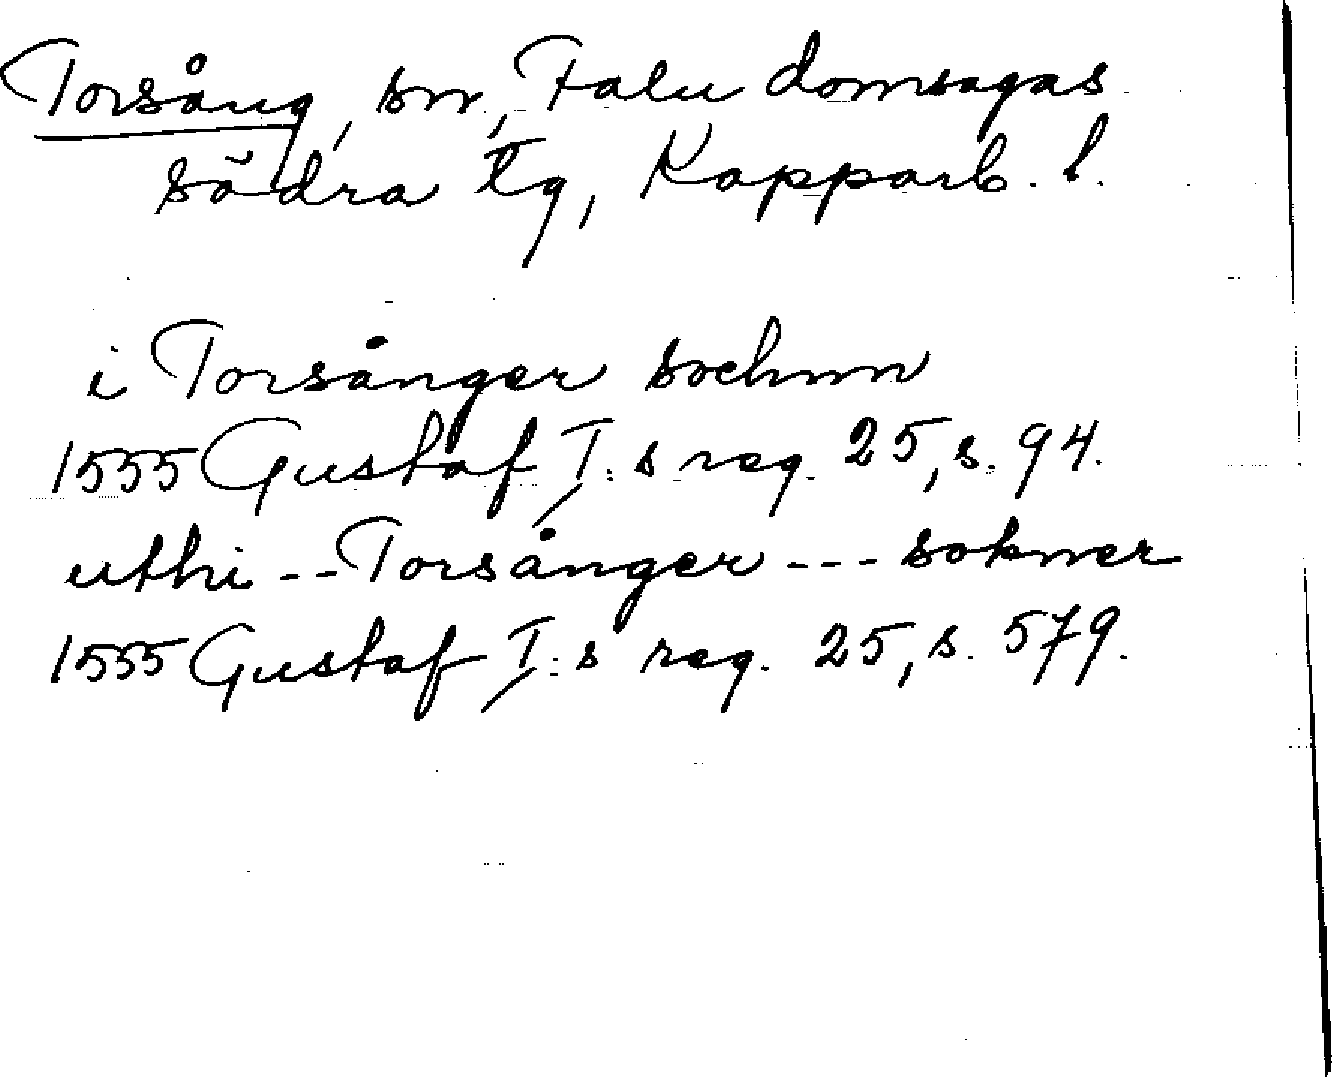 Torsång, sn, Falu domsagas
södra tg, Kopparb. l.
i Torsånger sochnn
1555 Gustaf I:s reg. 25, s. 94.
uthi -- Torsånger --- sokner
1555 Gustaf I:s reg. 25, s. 579.